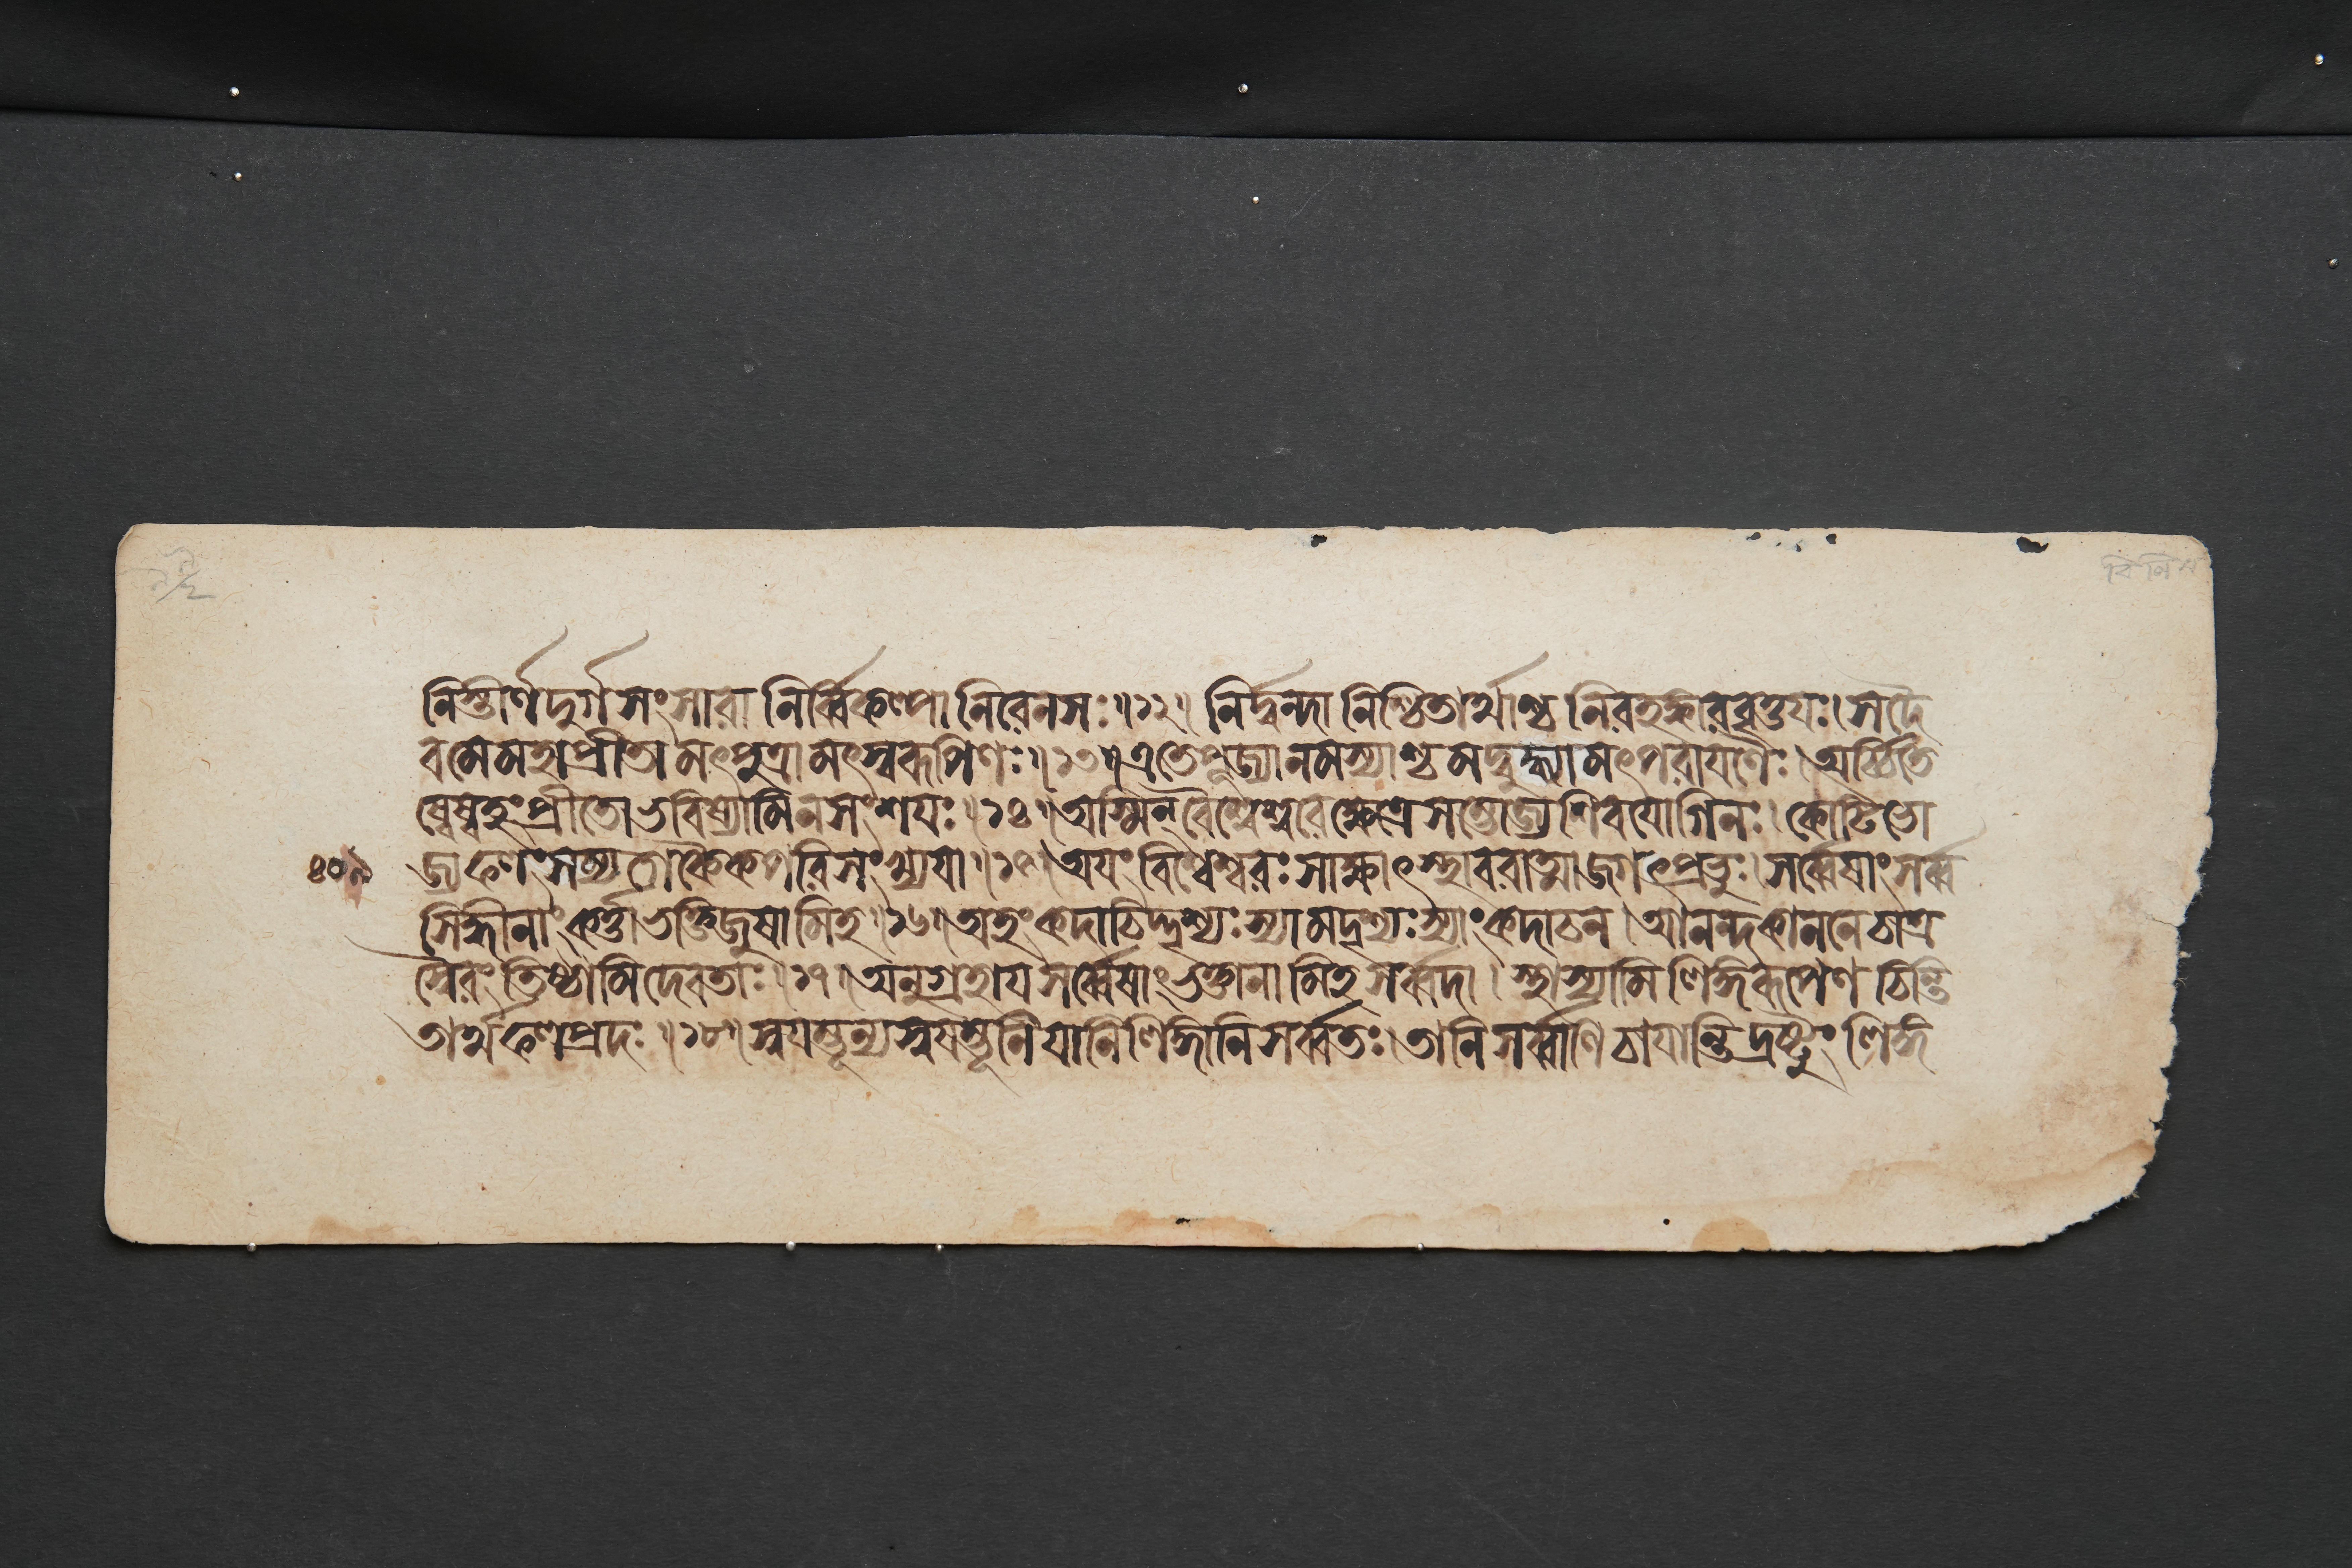 নিস্তীর্ণদুর্গসংসারা নির্ব্বিকল্পা নিরেনসঃ॥১২॥ নির্দ্বন্দ্বা নিশ্চিতার্থাশ্চ নিরহঙ্কারবৃত্তয়ঃ।সদৈ
বমেমহাপ্রীতা মৎপুত্রামৎস্বরূপিণঃ॥১৩॥এতেপূজ্যানমস্যাশ্চমদ্বুদ্ধ্যামৎপরায়ণৈঃ।অর্চ্চিতে
ষ্বেষ্বহংপ্রীতোভবিষ্যামিনসংশয়ঃ॥১৪॥অস্মিন্‌বৈশ্বেশ্বরেক্ষেত্রেসম্ভোজ্যাশিবযোগিনঃ।কোটিভো
৪০৯ জ্যফলংসম্যগেকৈকপরিসংখ্যয়া॥১৫॥অয়ংবিশ্বেশ্বরঃসাক্ষাৎস্থাবরাত্মাজগৎপ্রভুঃ।সর্ব্বেষাংসর্ব্ব
সিদ্ধীনাংকর্ত্তাভক্তিজুষামিহ॥১৬॥অহংকদাচিদ্দৃশ্যঃস্যামদৃশ্যঃস্যাংকদাচন।আনন্দকাননেচাত্র
স্বৈরং তিষ্ঠামিদেবতাঃ॥১৭॥অনুগ্রহায়সর্ব্বেষাংভক্তানামিহসর্ব্বদা। স্থাস্যামিলিঙ্গরূপেণচিন্তি
তার্থফলপ্রদঃ॥১৮॥স্বয়ম্ভূন্যস্বয়ম্ভূনিয়ানিলিঙ্গানিসর্ব্বতঃ।তানিসর্ব্বাণিচায়ান্তিদ্রষ্টুং লিঙ্গ